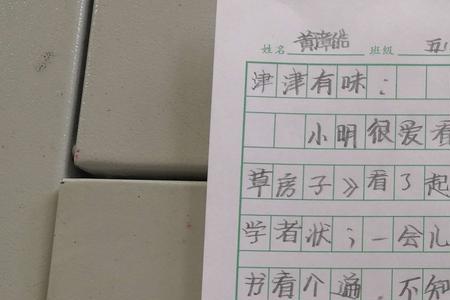 姓名 黄漳皓 班级 五
津津有味:
小明很爱看
草房子》看了起
学者状;一会儿
书看个遍,不知